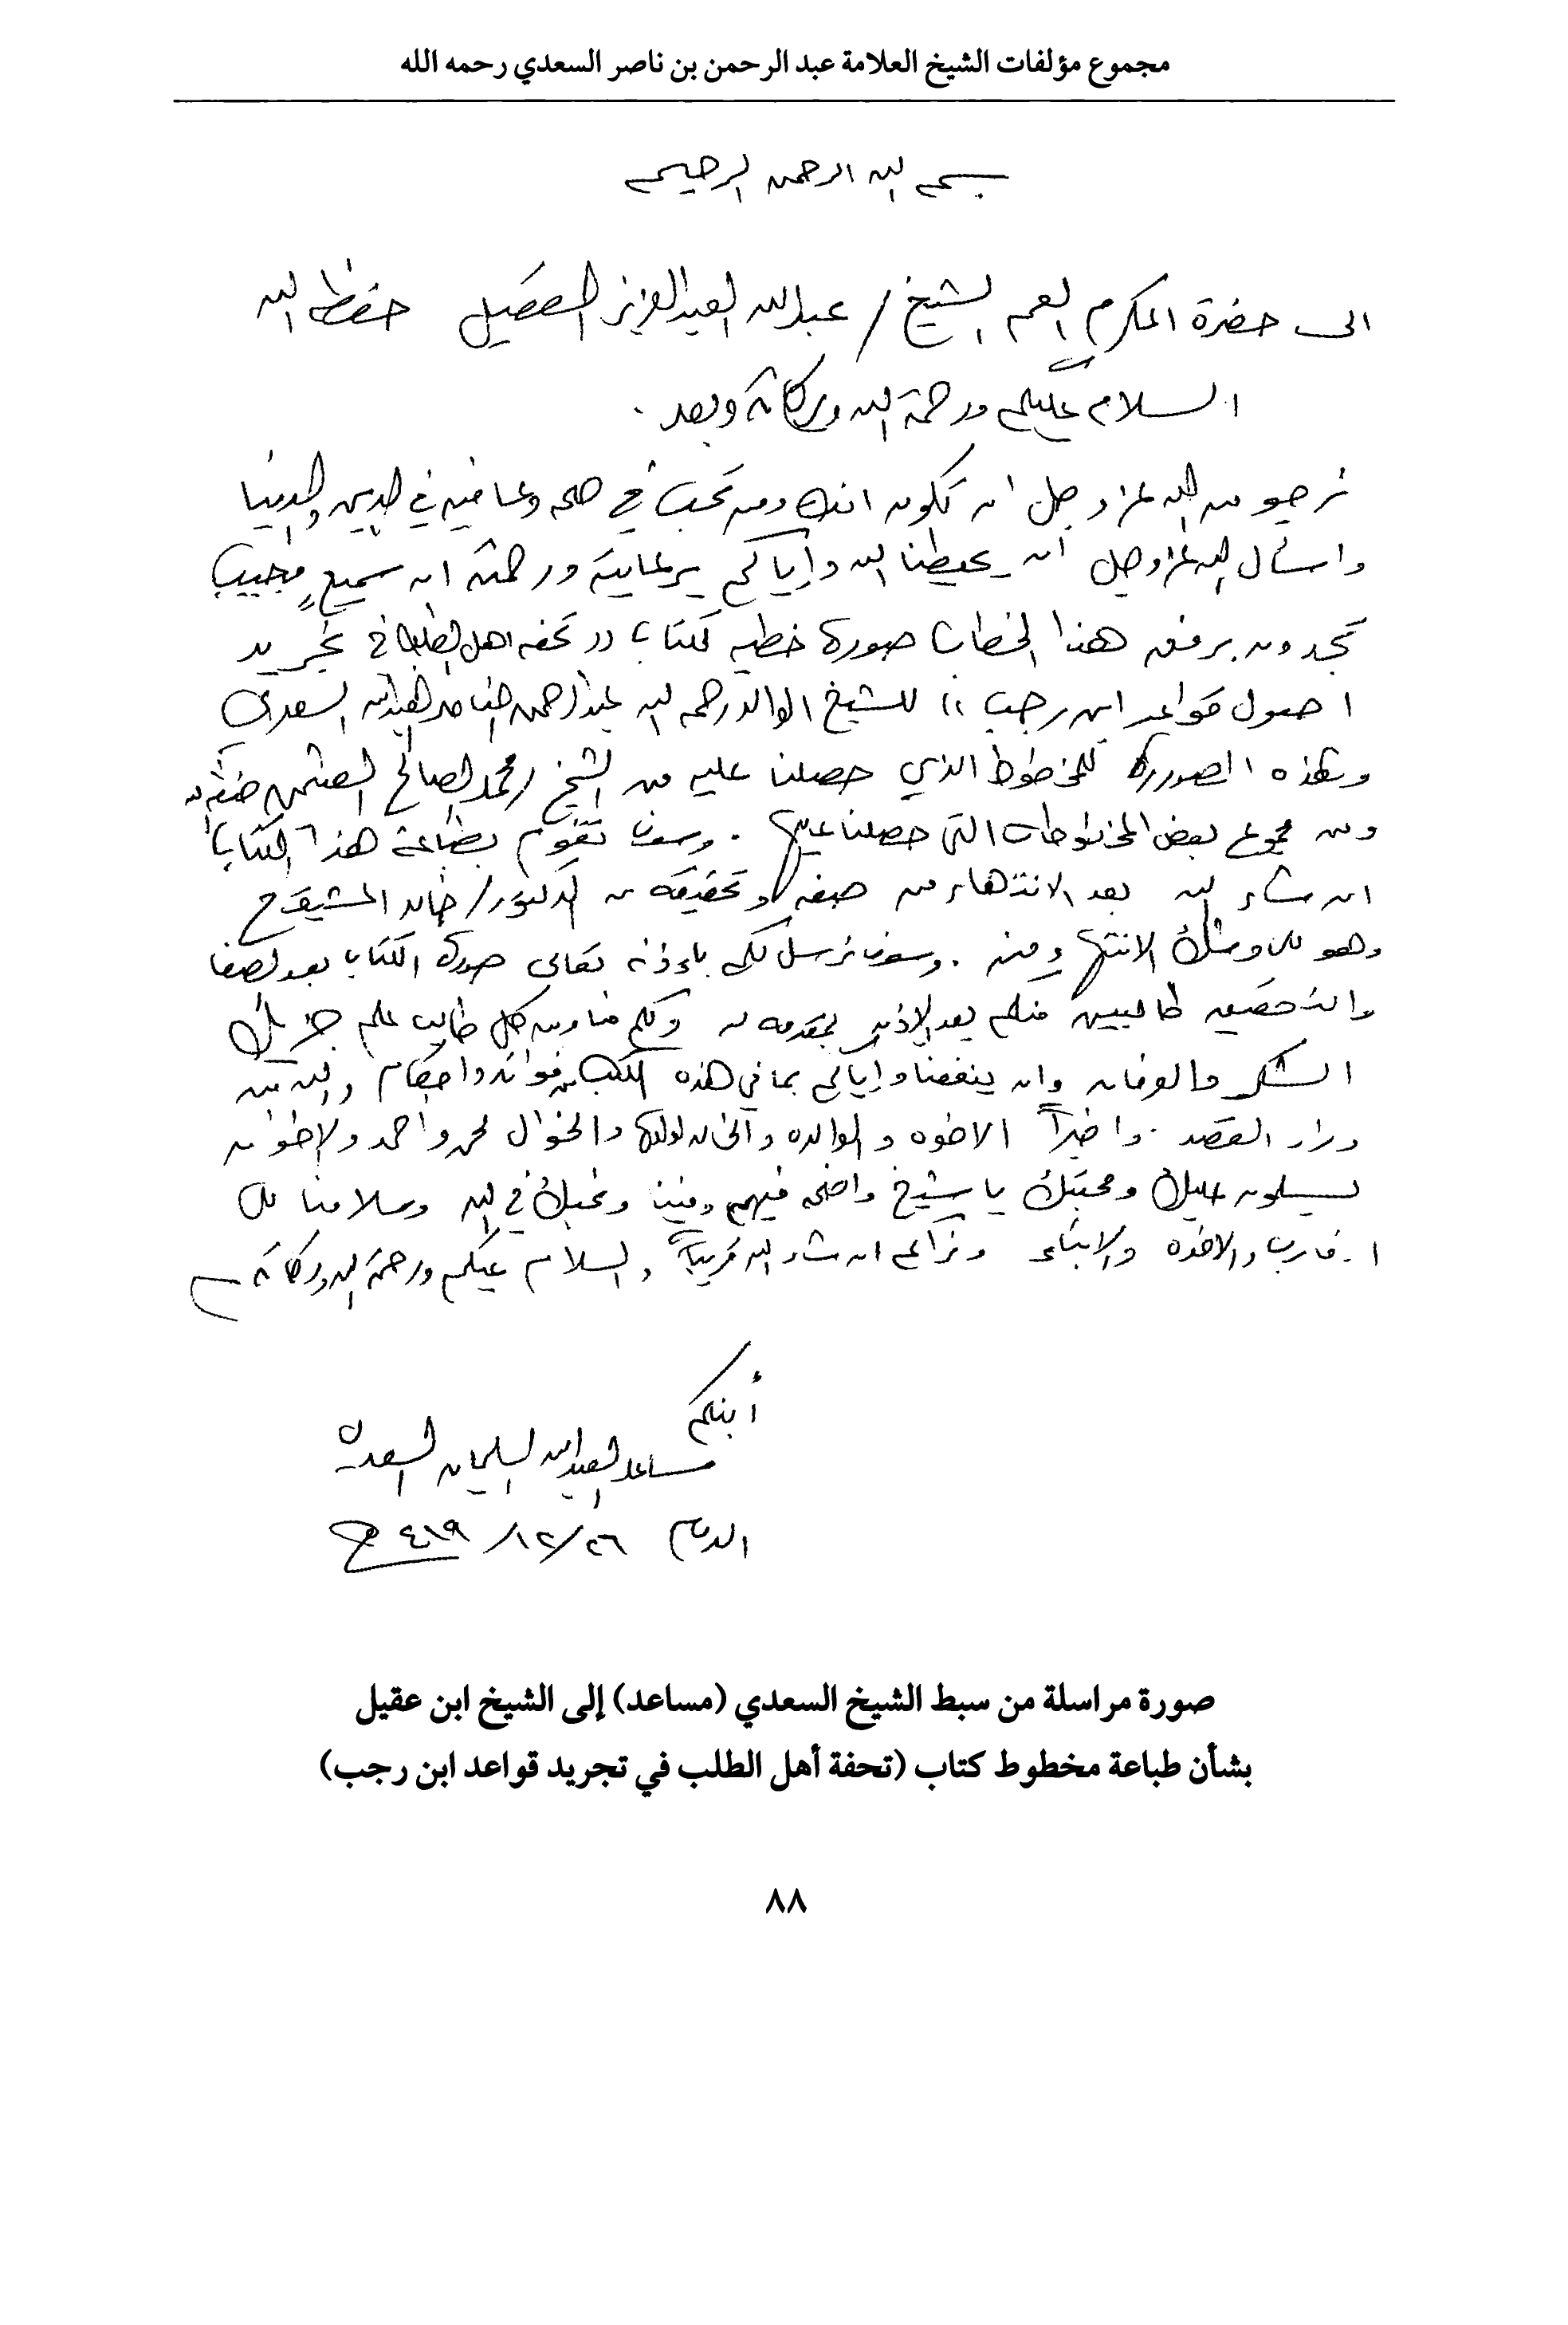 مجموع مؤلفات الشيخ العلامة عبد الرحمن بن ناصر السعدي رحمه الله
بسم الله الرحمن الرحيم
الى حضرة المكرم العم الشيخ / عبدالله العبدالعزيز العقيل حفظه الله
السلام عليكم ورحمة الله وبركاته وبعد .
نرجو من الله عز وجل ان تكون انت ومن تحب في صحه وعافيه في الدين والدنيا
واسأل الله عز وجل ان يحيطنا الله وإياكم برعايته ورحمته انه سميع مجيب
تجدون برفق هذا الخطاب صورة خطيه لكتاب (( تحفه اهل الطلب في تجريد
اصول قواعد ابن رجب )) للشيخ الوالد رحمه الله عبدالرحمن الناصر العبدالله السعدي
وهذه الصورره للمخطوط الذي حصلنا عليه من الشيخ / محمد الصالح العثيمين حفظه الله
ومن مجموع بعض المخطوطات التي حصلنا عليها . وسوف نقوم بطباعة هذا الكتاب
ان شاء الله بعد الانتهاء من صفه وتحقيقه من الدكتور / خالد المشيقح
وهو على وشك الانتهاء منه . وسوف نرسل لكم بإذنه تعالى صورة الكتاب بعد الصف
والتحقيق طالبين منكم بعد الإذن بمقدمه له ولكم منا ومن كل طالب علم جزيل
الشكر والعرفان وان ينفعنا وإياكم بما في هذه الكتب من فوائد واحكام والله من
وراء القصد . واخيراً الاخوه والوالده والخاله لولوه والخوال محمد واحمد والاخوان
يسلمون عليك ومحبتك يا شيخ واضحه فيهم وفينا ونحبك في الله وسلامنا على
الاقارب والاخوة والابناء ونراكم ان شاء الله قريباً والسلام عليكم ورحمة الله وبركاته
أبنكم
مساعد العبدالله السليمان السعدي
الدمام ٢٦/ ١٢/ ٤١٩ هـ
صورة مراسلة من سبط الشيخ السعدي (مساعد) إلى الشيخ ابن عقيل
بشأن طباعة مخطوط كتاب (تحفة أهل الطلب في تجريد قواعد ابن رجب)
٨٨